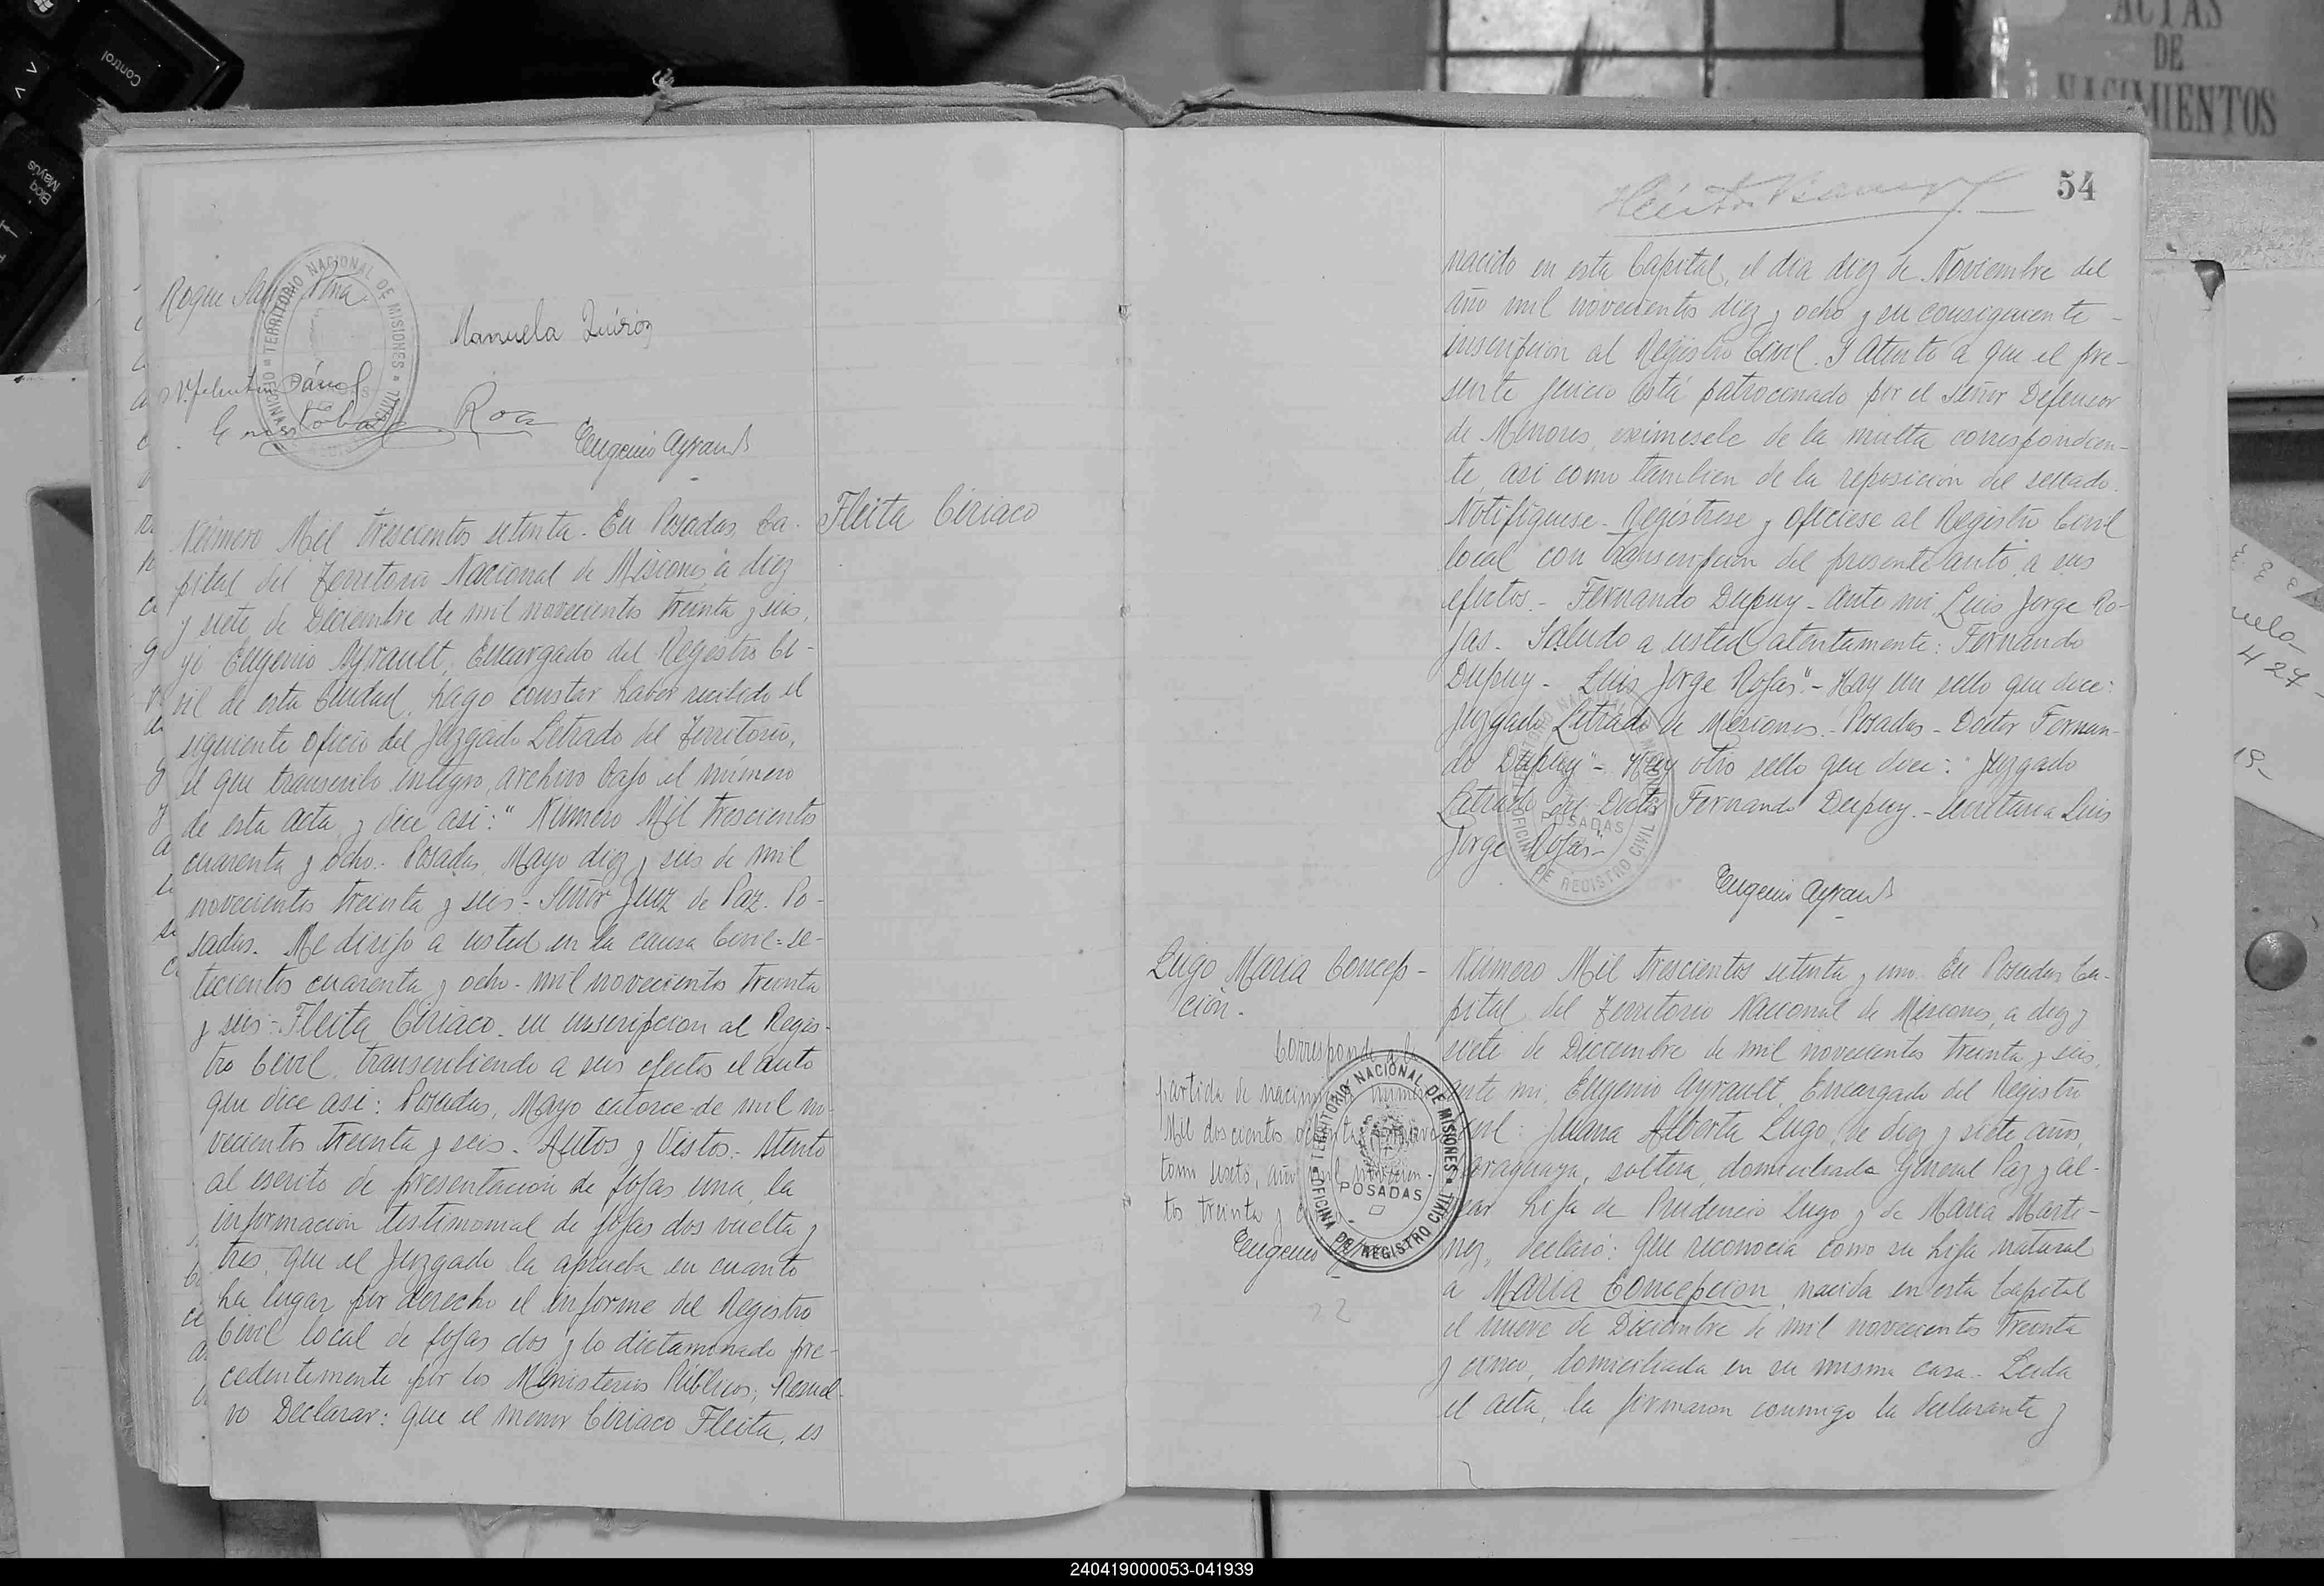 Control
Bloq
Mayús
ACTAS
DE
NACIMIENTOS
54
Roque
Manuela Quiróz
Roa
Eugenio Ayrault
TERRITORIO NACIONAL DE MISIONES
Fleita Ciriaco
Número Mil trescientos setenta. En Posadas, Ca-
pital del Territorio Nacional de Misiones, a diez
y siete de Diciembre de mil novecientos treinta y seis,
yó Eugenio Ayrault, Encargado del Registro Ci-
vil de esta Ciudad, hago constar haber recibido el
siguiente oficio del Juzgado Letrado del Territorio,
el que transcribo integro, archivo bajo el número
de esta acta y dice así: "Número Mil trescientos
cuarenta y ocho.- Posadas, Mayo diez y seis de mil
novecientos treinta y seis.- Señor Juez de Paz. Po-
sadas. Me dirijo a usted en la causa Civil=se-
tecientos cuarenta y ocho- mil novecientos treinta
y seis- Fleita Ciriaco- su inscripcion al Regis-
tro Civil, transcribiendo a sus efectos el auto
que dice asi: Posadas, Mayo catorce de mil no-
vecientos treinta y seis.- Autos y Vistos.- Atento
al escrito de presentación de fojas una, la
información testimonial de fojas dos vuelta y
tres, que el Juzgado la aprueba en cuanto
ha lugar por derecho el informe del Registro
Civil local de fojas dos y lo dictaminado pre-
cedentemente por los Ministerios Públicos; Resuel-
vo Declarar: que el menor Ciriaco Fleita, es
nacido en esta Capital, el dia diez de Noviembre del
año mil novecientos diez y ocho y su consiguiente
inscripcion al Registro Civil. Y Atento a que el pre-
sente juicio está patrocinado por el Señor Defensor
de Menores, eximesele de la multa correspondien-
te, asi como tambien de la reposición del sellado.
Notifíquese- Regístrese y ofíciese al Registro Civil
local con transcripcion del presente auto, a sus
efectos.- Fernando Dupuy- Ante mi, Luis Jorge Ro-
jas.- Saludo a usted atentamente: Fernando
Dupuy- Luis Jorge Rojas"- Hay un sello que dice:
Juzgado Letrado de Misiones.- Posadas- Doctor Fernan-
do Dupuy"- Hay otro sello que dice: "Juzgado
Letrado del Doctor Fernando Dupuy.- Secretaria Luis
Jorge Rojas"-
POSADAS
OFICINA DE REGISTRO CIVIL
Eugenio Ayrault
Lugo Maria Concep-
ción.
Corresponde a la
partida de nacimiento número
Mil doscientos
tomo sexto, año mil novecien-
tos treinta y
Eugenio
TERRITORIO NACIONAL DE MISIONES
POSADAS
OFICINA DE REGISTRO CIVIL
22
Número Mil trescientos setenta y uno. En Posadas Ca-
pital del Territorio Nacional de Misiones, a diez y
siete de Diciembre de mil novecientos treinta y seis,
ante mi, Eugenio Ayrault, Encargado del Registro
Civil: Juana Alberta Lugo, de diez y siete años,
Paraguaya, soltera, domiciliada General Paz y al-
vear hija de Prudencio Lugo y de Maria Marti-
nez, declaró: que reconocia como su hija natural
a Maria Concepcion, nacida en esta Capital
el nueve de Diciembre de mil novecientos treinta
y cinco, domiciliada en su misma casa.- Leida
el acta, la firmaron conmigo la declarante y
240419000053-041939